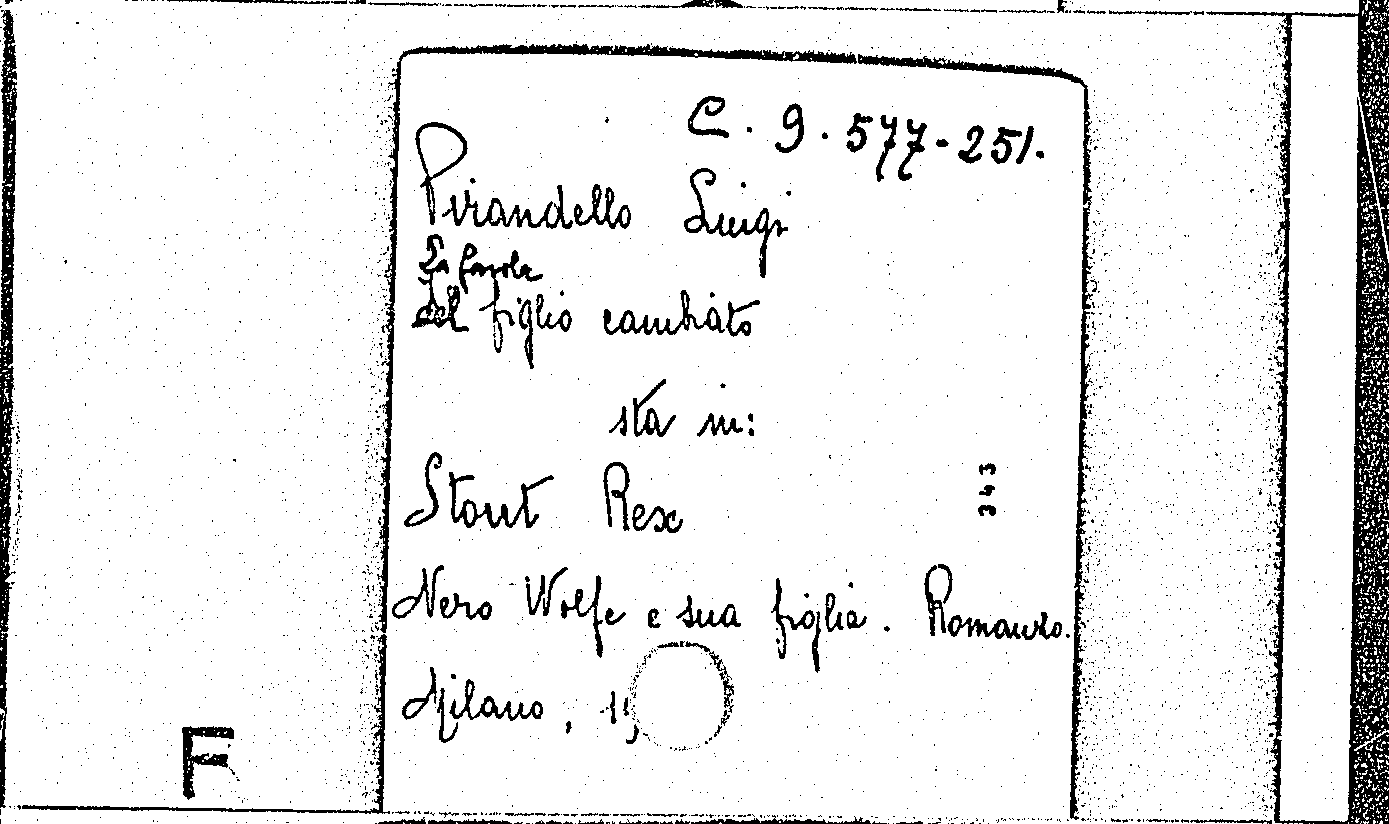 C. 9. 577-251.
Pirandello Luigi
La favola
del figlio cambiato
sta in:
Stout Rex
343
Nero Wolfe e sua figlia. Romanzo.
Milano,
F